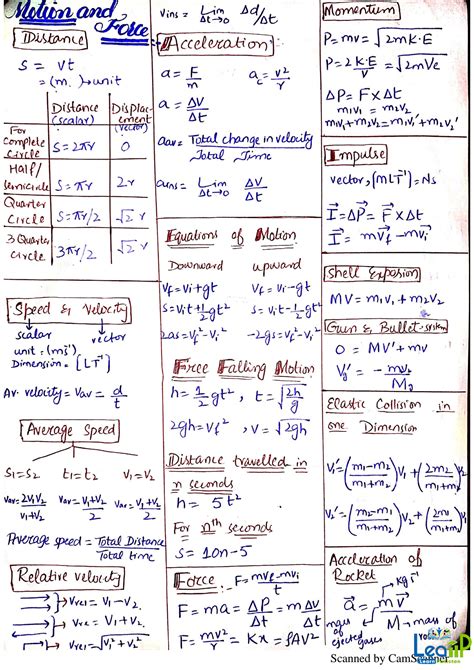 Motion and
Force
Distance
S = vt
= (m) → unit
Distance (scalar)
Displacement (vector)
For Complete Circle
S = 2πr
0
Half/ Semicircle
S = πr
2r
Quarter Circle
S = πr/2
√2 r
3 Quarter Circle
3πr/2
√2 r
Speed & Velocity
scalar
vector
unit = (ms⁻¹)
Dimension = [LT⁻¹]
Av. velocity = Vav = d/t
Average Speed
S1 = S2
t1 = t2
V1 = V2
Vav = 2V1V2/V1+V2
Vav = V1+V2/2
Vav = V1+V2/2
Average speed = Total Distance/Total time
Relative velocity
Vrel = V1 - V2.
Vrel = V1 + V2.
Vrel = √V1² + V2²
Vins = Lim Δt→0 Δd/Δt
Acceleration
a = F/m
ac = v²/r
a = ΔV/Δt
aav = Total change in velocity/Total Time
ains = Lim Δt→0 ΔV/Δt
Equations of Motion
Downward
upward
Vf = Vi + gt
Vf = Vi - gt
S = Vit + 1/2 gt²
S = Vit - 1/2 gt²
2as = Vf² - Vi²
-2gs = Vf² - Vi²
Free Falling Motion
h = 1/2 gt², t = √2h/g
2gh = Vf², v = √2gh
Distance travelled in
n seconds
h = 5t²
For nth seconds
S = 10n - 5
Force
F = mvf - mvi/t
F = ma = ΔP/t = m ΔV/t
F = mv²/r = Kx = ρAV²
Momentum
P = mv = √2mK.E
P = 2 K.E/V = √2mVe
ΔP = F x Δt
m1V1 = m2V2
m1V1 + m2V2 = m1V1' + m2V2'
Impulse
vector, [MLT⁻¹] = Ns
I = ΔP = F x Δt
I = mVf - mVi
Shell Exposion
MV = m1V1 + m2V2
Gun & Bullet-system
0 = MV' + mv
Elastic Collision in
one Dimension
V1' = (m1-m2/m1+m2) V1 + (2m2/m1+m2) V2
Acceleration of
Rocket
kg s⁻¹
a = m v/M
mass of ejected gases
M - mass of
Scanned by CamScanner